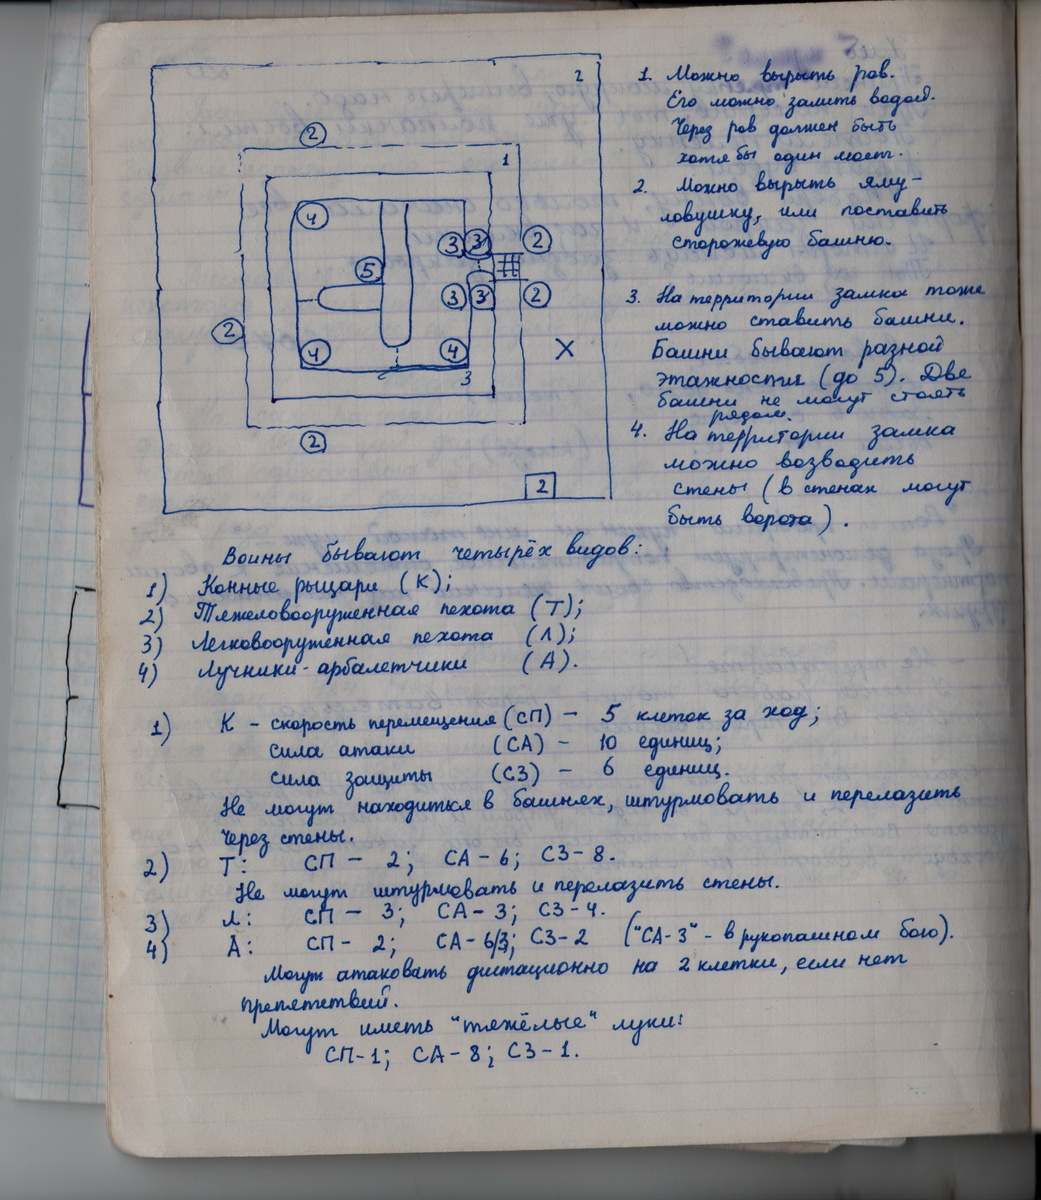 2
1
2
4
3
3
2
5
2
3
3
2
4
4
3
2
X
2
1. Можно вырыть ров.
Его можно залить водой.
Через ров должен быть
хотя бы один мост.
2. Можно вырыть яму-
ловушку, или поставить
сторожевую башню.
3. На территории замка тоже
можно ставить башни.
Башни бывают разной
этажности (до 5). Две
башни не могут стоять
рядом.
4. На территории замка
можно возводить
стены (в стенах могут
быть ворота).
Воины бывают четырёх видов:
1) Конные рыцари (К);
2) Тяжеловооруженная пехота (Т);
3) Легковооруженная пехота (Л);
4) Лучники-арбалетчики (А).
1) К – скорость перемещения (СП) – 5 клеток за ход;
сила атаки (СА) – 10 единиц;
сила защиты (СЗ) – 6 единиц.
Не могут находиться в башнях, штурмовать и перелазить
через стены.
2) Т: СП – 2; СА – 6; СЗ – 8.
Не могут штурмовать и перелазить стены.
3) Л: СП – 3; СА – 3; СЗ – 4.
4) А: СП – 2; СА – 6/3; СЗ – 2 ("СА-3" - в рукопашном бою).
Могут атаковать дистационно на 2 клетки, если нет
препятствий.
Могут иметь "тяжёлые" луки:
СП-1; СА – 8; СЗ – 1.